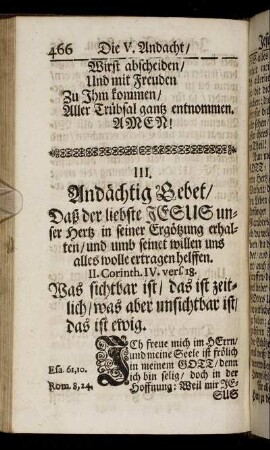 466 Die V. Andacht/
Wirst abscheiden/
Und mit Freuden
Zu Ihm kommen/
Aller Trübsal gantz entnommen.
AMEN!
III.
Andächtig Gebet/
Daß der liebste JESUS un-
ser Hertz in seiner Ergötzung erhal-
ten/ und umb seinet willen uns
alles wolle ertragen helffen.
II. Corinth. IV. vers 18.
Was sichtbar ist/ das ist zeit-
lich/ was aber unsichtbar ist/
das ist ewig.
ICh freue mich im HErrn/
und meine Seele ist frölich
in meinem GOTT/ denn
Esa. 61,10. ich bin selig/ doch in der
Rom. 8,24. Hoffnung: Weil mir JE-
SUS